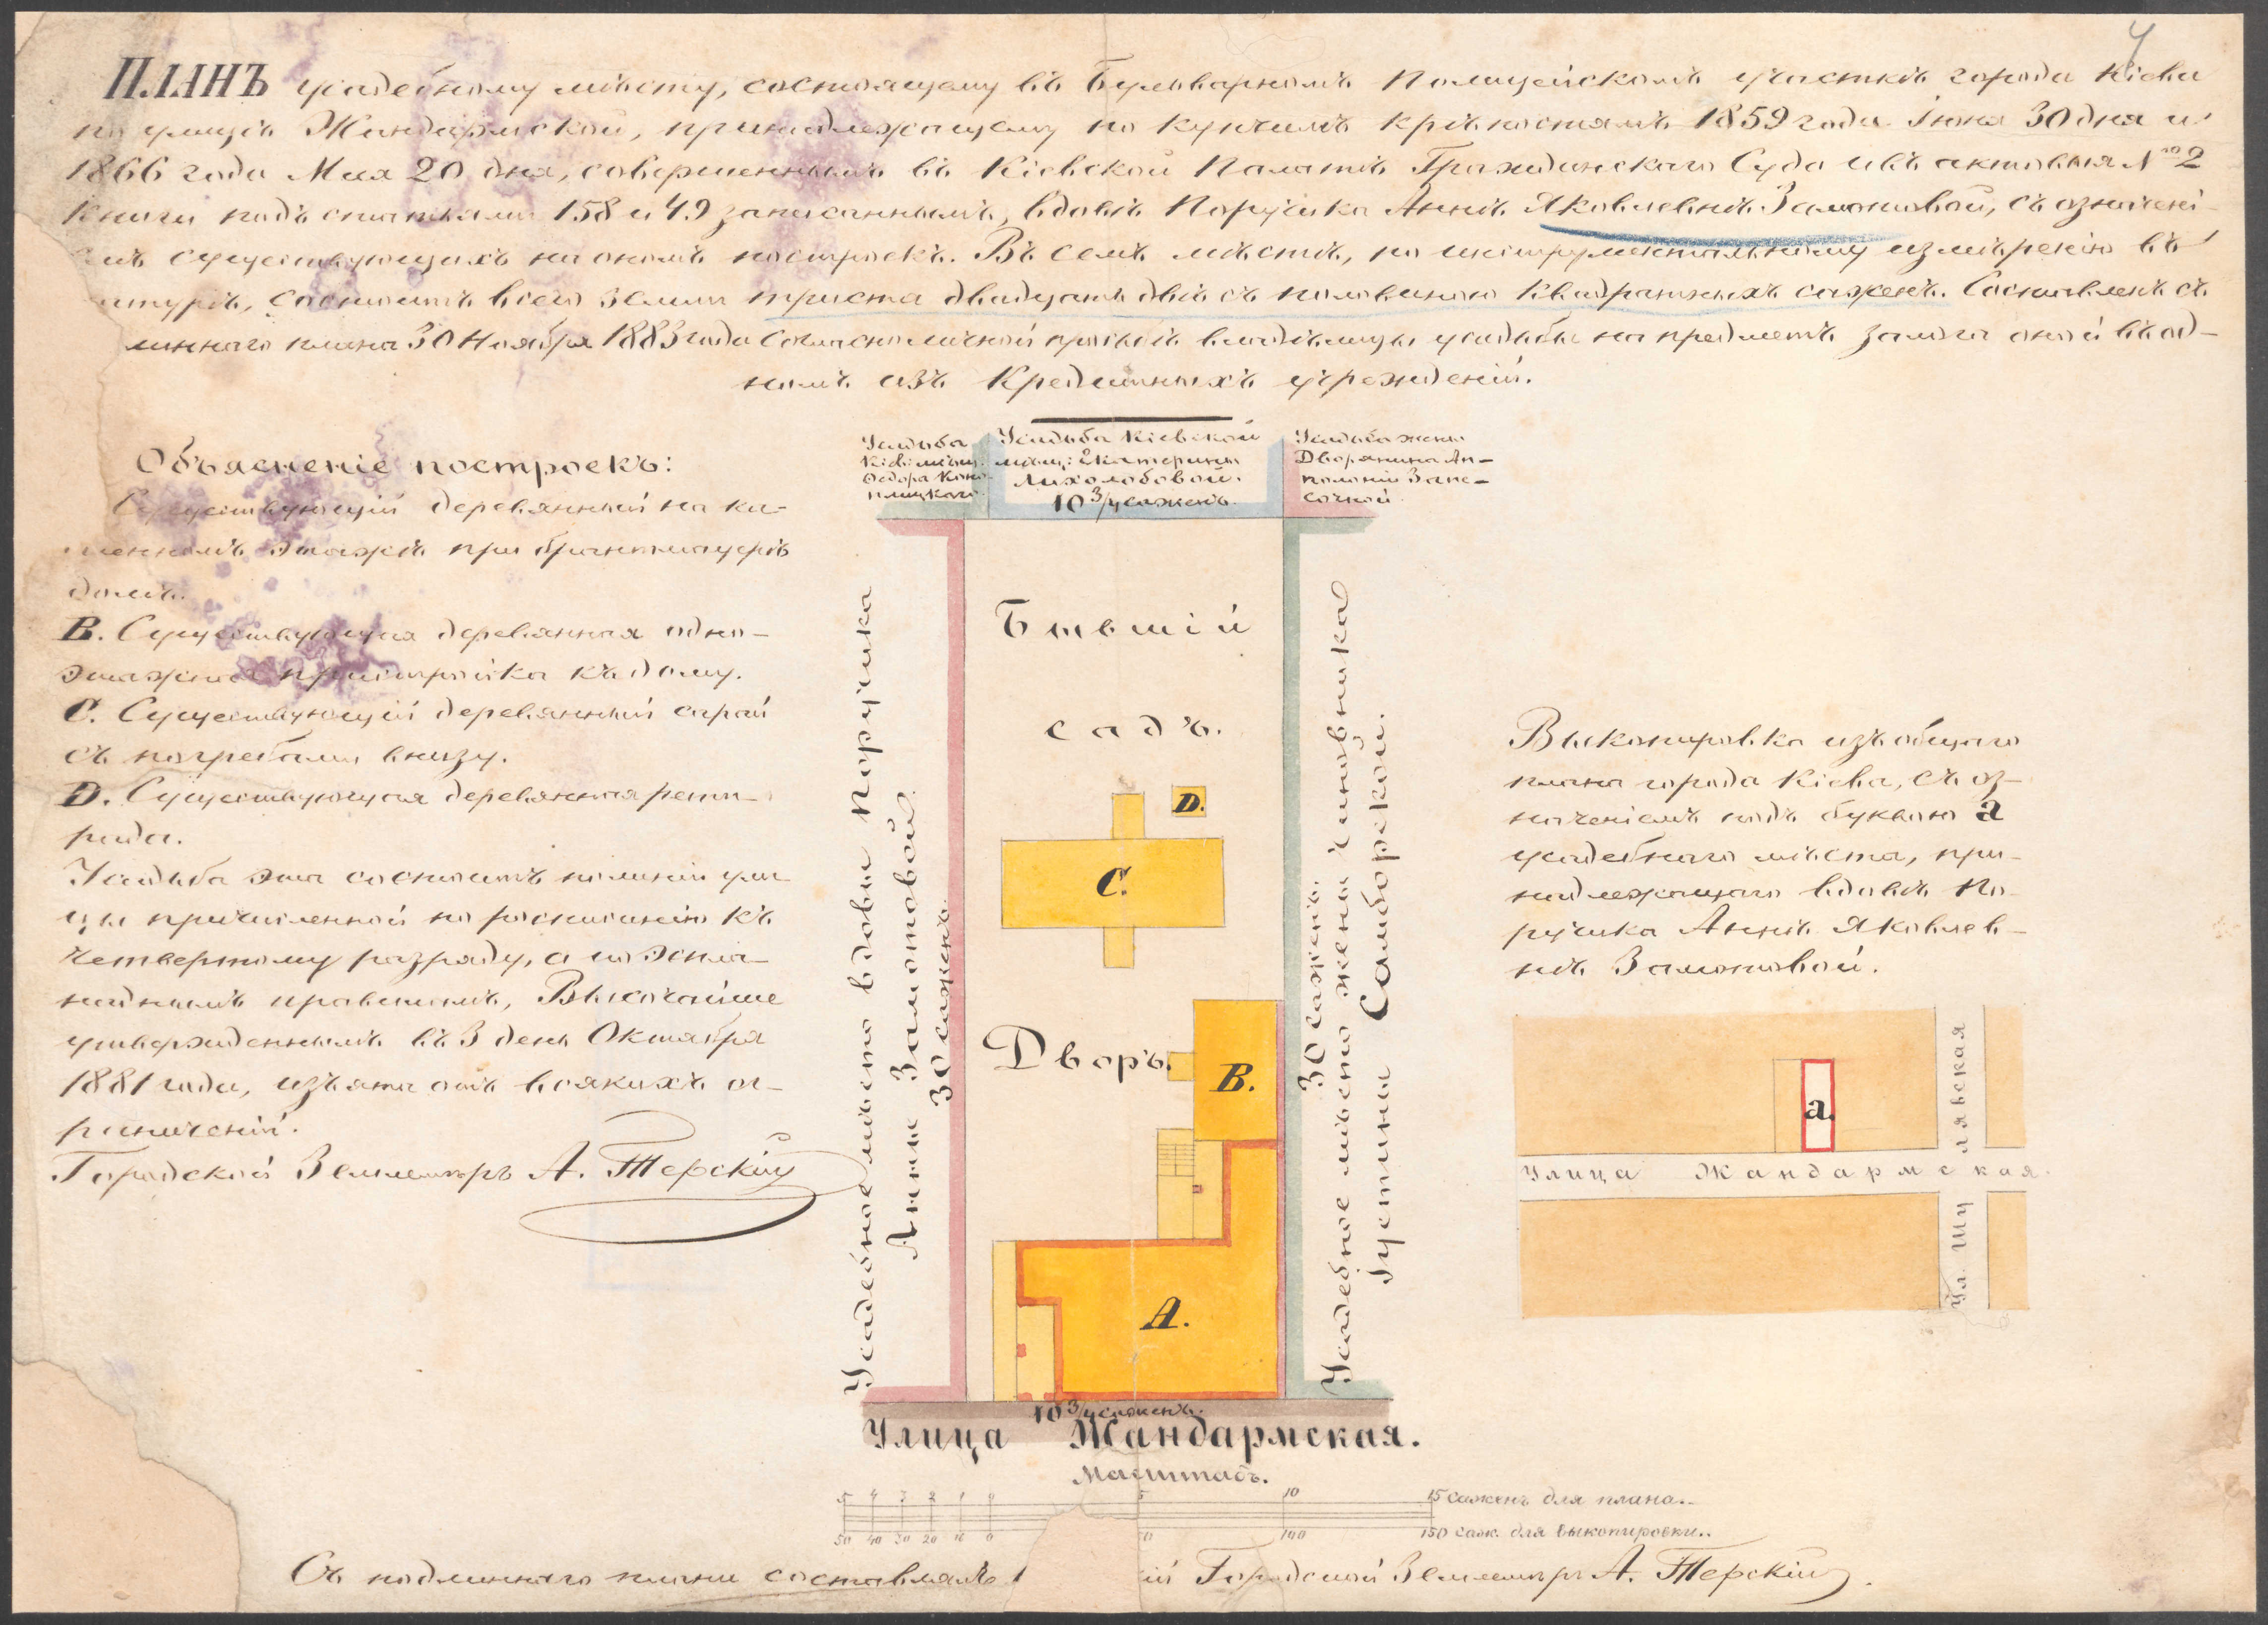 ПЛАНЪ усадебному мѣсту, состоящему въ Бульварномъ Полицейскомъ участкѣ города Кіева
по улицѣ Жандармской, принадлежащему по купчимъ крѣпостямъ 1859 года Іюня 30 дня и
1866 года Мая 20 дня, совершеннымъ въ Кіевской Палатѣ Гражданскаго Суда и въ актовыя № 2
книги подъ статьями 158 и 49 записаннымъ, вдовѣ Поручика Аннѣ Яковлевнѣ Замотовой, съ означені-
емъ существующихъ на ономъ построекъ. Въ семъ мѣстѣ, по инструментальному измѣренію въ
натурѣ, состоитъ всего земли триста двадцать двѣ съ половиною квадратныхъ саженъ. Составленъ съ
линнаго плана 30 Ноября 1883 года согласно личной прозьбѣ владѣлицы усадьбы на предметъ залога оной въ од-
номъ изъ Кредитныхъ учрежденій.
Объясненіе построекъ:
Существующій деревянный на ка-
менномъ этажѣ при брантмауерѣ
домъ.
B. Существующая деревянная одно-
этажная пристройка къ дому.
C. Существующій деревянный сарай
съ погребами внизу.
D. Существующая деревянная рети-
рада.
Усадьба эта состоитъ по линіи ули-
цы причисленной по росписанію къ
четвертому разряду, а по эспла-
наднымъ правиламъ, Высочайше
утвержденнымъ въ 3 день Октября
1881 года, изъята отъ всякихъ ог-
раниченій.
Городской Землемѣръ А. Терскій
Усадьба
Кіев: мѣщ:
Федора Коно-
плицкаго.
Усадьба Кіевской
мѣщ: Екатерины
Лихолобовой.
10 3/4 сажень.
Усадьба жены
Дворянина Ап-
полоніи Запе-
сочной.
Бывшій
садъ.
D.
C.
Дворъ.
B.
A.
Усадебное мѣсто вдовы Поручика
Анны Замотовой.
30 саженъ.
30 саженъ.
Усадебное мѣсто жены чиновника
Іустины Самборской.
10 3/4 сажень.
Улица Жандармская.
Масштабъ.
5 4 3 2 1 0 5 10 15 сажень для плана.
50 40 30 20 10 0 0 100 150 саж. для выкопировки.
Выкопировка изъ общаго
плана города Кіева, съ оз-
наченіемъ подъ буквою а
усадебнаго мѣста, при-
надлежащаго вдовѣ По-
ручика Аннѣ Яковлев-
нѣ Замотовой.
а.
Улица Жандармская.
Ул. Шулявская
Съ подлиннаго плана составлялъ ій Городской Землемѣръ А. Терскій.